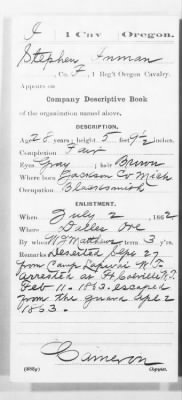 I 1 Cav Oregon.
Stephen Inman
, Co. F, 1 Reg't Oregon Cavalry.
Appears on
Company Descriptive Book
of the organization named above.
DESCRIPTION.
Age 28 years; height 5 feet 9½ inches.
Complexion Fair
Eyes Gray; hair Brown
Where born Jackson Co Mich
Occupation Blacksmith
ENLISTMENT.
When July 2, 1862.
Where Dalles Ore
By whom W J Matthews; term 3 y'rs.
Remarks Deserted Sept 27
from Camp Lapwai W. T.
arrested at Ft Colville W. T.
Feb 11. 1863. escaped
from the guard Sept 2
1863.
Cameron
(383g) Copyist.